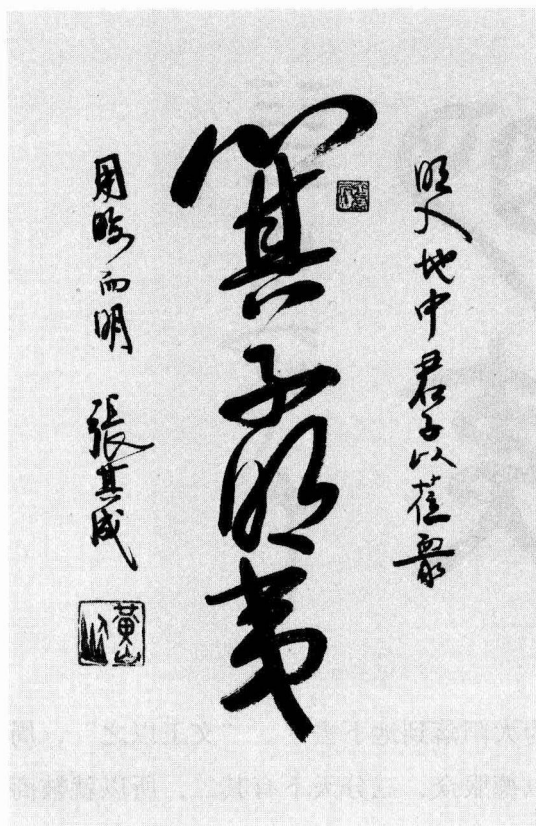 明入地中君子以莅眾
箕子明夷
用晦而明 張其成
黃山